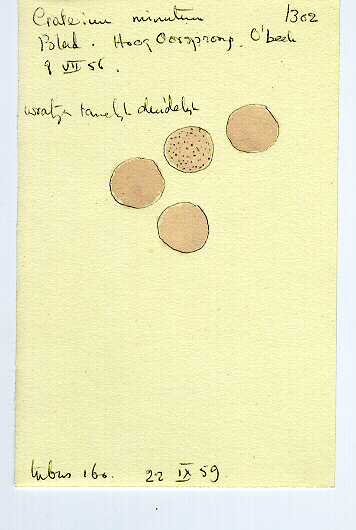 Craterium minutum 1302
Blad. Hoog Oorsprong. O'beek
9 VII 56.
wratjes tamelijk duidelijk
tubus 160. 22 IX 59.